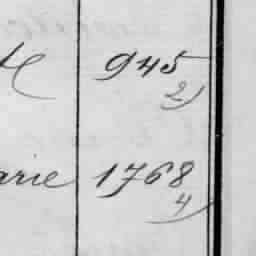 945
2)
arie 1768
4)